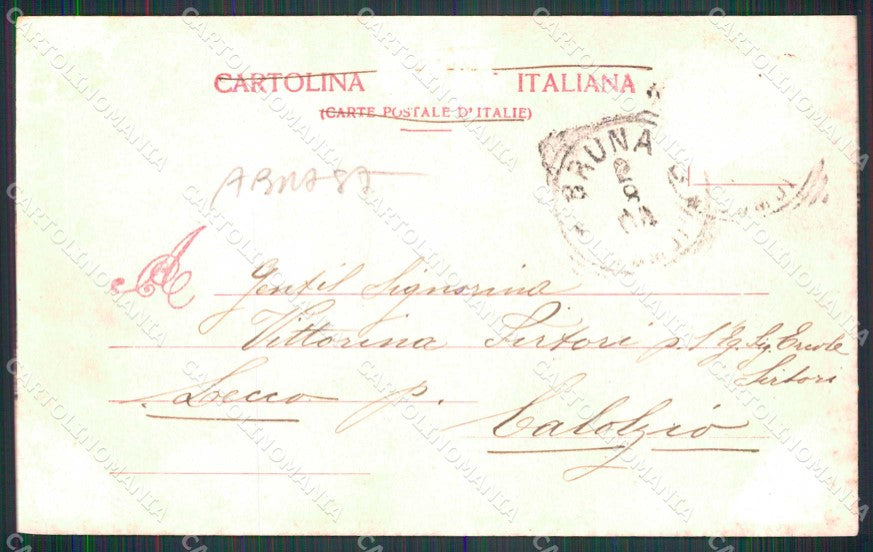 CARTOLINA ITALIANA
(CARTE POSTALE D'ITALIE)
BRUNA
28
04
Gentil Signorina
Vittorina Sirtori p. Sig. Ercole
Sirtori
Lecco p.
Calolzio
CARTOLINOMANIA